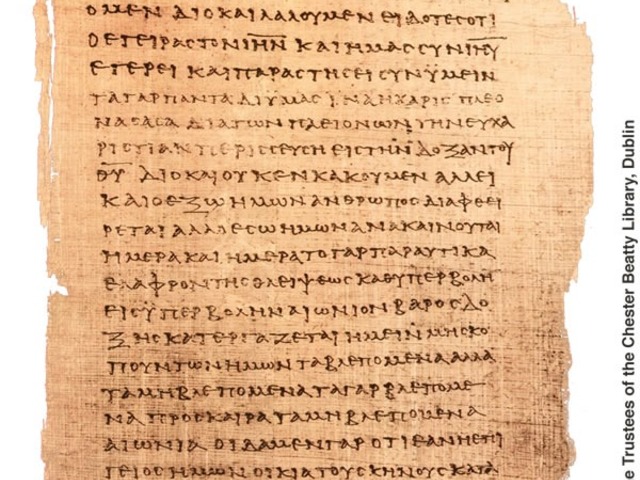 ΟΜΕΝ ΔΙΟ ΚΑΙ ΛΑΛΟΥΜΕΝ ΕΙΔΟΤΕΣ ΟΤΙ
Ο ΕΓΕΙΡΑΣ ΤΟΝ ΙΗΝ ΚΑΙ ΗΜΑΣ ΣΥΝ ΙΗΥ
ΕΓΕΡΕΙ ΚΑΙ ΠΑΡΑΣΤΗΣΕΙ ΣΥΝ ΥΜΕΙΝ
ΤΑ ΓΑΡ ΠΑΝΤΑ ΔΙ ΥΜΑΣ ΙΝΑ Η ΧΑΡΙΣ ΠΛΕΟ
ΝΑΣΑΣΑ ΔΙΑ ΤΩΝ ΠΛΕΙΟΝΩΝ ΤΗΝ ΕΥΧΑ
ΡΙΣΤΙΑΝ ΠΕΡΙΣΣΕΥΣΗ ΕΙΣ ΤΗΝ ΔΟΞΑΝ ΤΟΥ
ΘΥ ΔΙΟ ΚΑΙ ΟΥΚ ΕΝΚΑΚΟΥΜΕΝ ΑΛΛ ΕΙ
ΚΑΙ Ο ΕΞΩ ΗΜΩΝ ΑΝΘΡΩΠΟΣ ΔΙΑΦΘΕΙ
ΡΕΤΑΙ ΑΛΛ Ο ΕΣΩ ΗΜΩΝ ΑΝΑΚΑΙΝΟΥΤΑΙ
ΗΜΕΡΑ ΚΑΙ ΗΜΕΡΑ ΤΟ ΓΑΡ ΠΑΡΑΥΤΙΚΑ
ΕΛΑΦΡΟΝ ΤΗΣ ΘΛΕΙΨΕΩΣ ΚΑΘ ΥΠΕΡΒΟΛΗ
ΕΙΣ ΥΠΕΡΒΟΛΗΝ ΑΙΩΝΙΟΝ ΒΑΡΟΣ ΔΟ
ΞΗΣ ΚΑΤΕΡΓΑΖΕΤΑΙ ΗΜΕΙΝ ΜΗ ΣΚΟ
ΠΟΥΝΤΩΝ ΗΜΩΝ ΤΑ ΒΛΕΠΟΜΕΝΑ ΑΛΛΑ
ΤΑ ΜΗ ΒΛΕΠΟΜΕΝΑ ΤΑ ΓΑΡ ΒΛΕΠΟΜΕ
ΝΑ ΠΡΟΣΚΑΙΡΑ ΤΑ ΜΗ ΒΛΕΠΟΜΕΝΑ
ΑΙΩΝΙΑ ΟΙΔΑΜΕΝ ΓΑΡ ΟΤΙ ΕΑΝ Η ΕΠΙ
ΓΕΙΟΣ ΗΜΩΝ ΟΙΚΙΑ ΤΟΥ ΣΚΗΝΟΥΣ ΚΑΤΑ
e Trustees of the Chester Beatty Library, Dublin